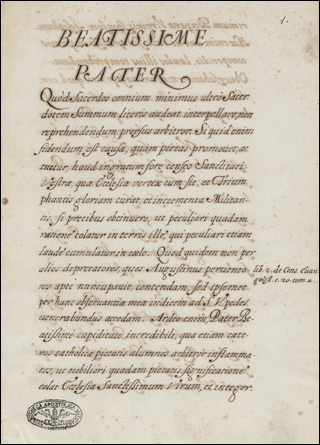 1.
BEATISSIME
PATER
Quòd Sacerdos omnium minimus ultrò Sacer
dotem Summum literis audeat interpellare, non
reprehendendum prorsus arbitror. Si quid enim
fidendum est causæ, quam pietas promouet, ac
tuetur, haud ingratum fore censeo Sanctitati
Vestræ, quæ Ecclesiæ vertex cum sit, et Trium
phantis gloriam curat, et incrementa Militan
tis, si precibus obtinuero, ut peculiari quadam
ratione colatur in terris ille, qui peculiari etiam
laude cumulatur in cœlo. Quod quidem non per
alios deprecatores, ques Augustinus peruento
res aptè nuncupauit, contendam, sed ipsemet
per hanc obseruantiæ meæ indicem ad S. V. pedes
venerabundus accedam. Ardeo enim, Pater Be
atissime cupiditate incredibili, qua etiam cæte
ros catholicæ pietatis alumnos arbitror inflamma
tos, ut nobiliori quadam pietatis significatione
colat Ecclesia Sanctissimum Virum, et integer.
lib. 2. de Cons. Euan
gelist. c. 20. tom. 4.